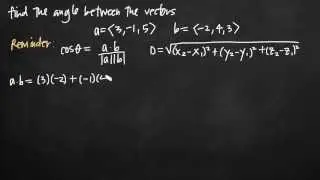 find the angle between the vectors
a=⟨3,-1,5⟩ b=⟨-2,4,3⟩
Reminder: cosθ = a·b / |a||b| D=√(x₂-x₁)²+(y₂-y₁)²+(z₂-z₁)²
a·b = (3)(-2) + (-1)(